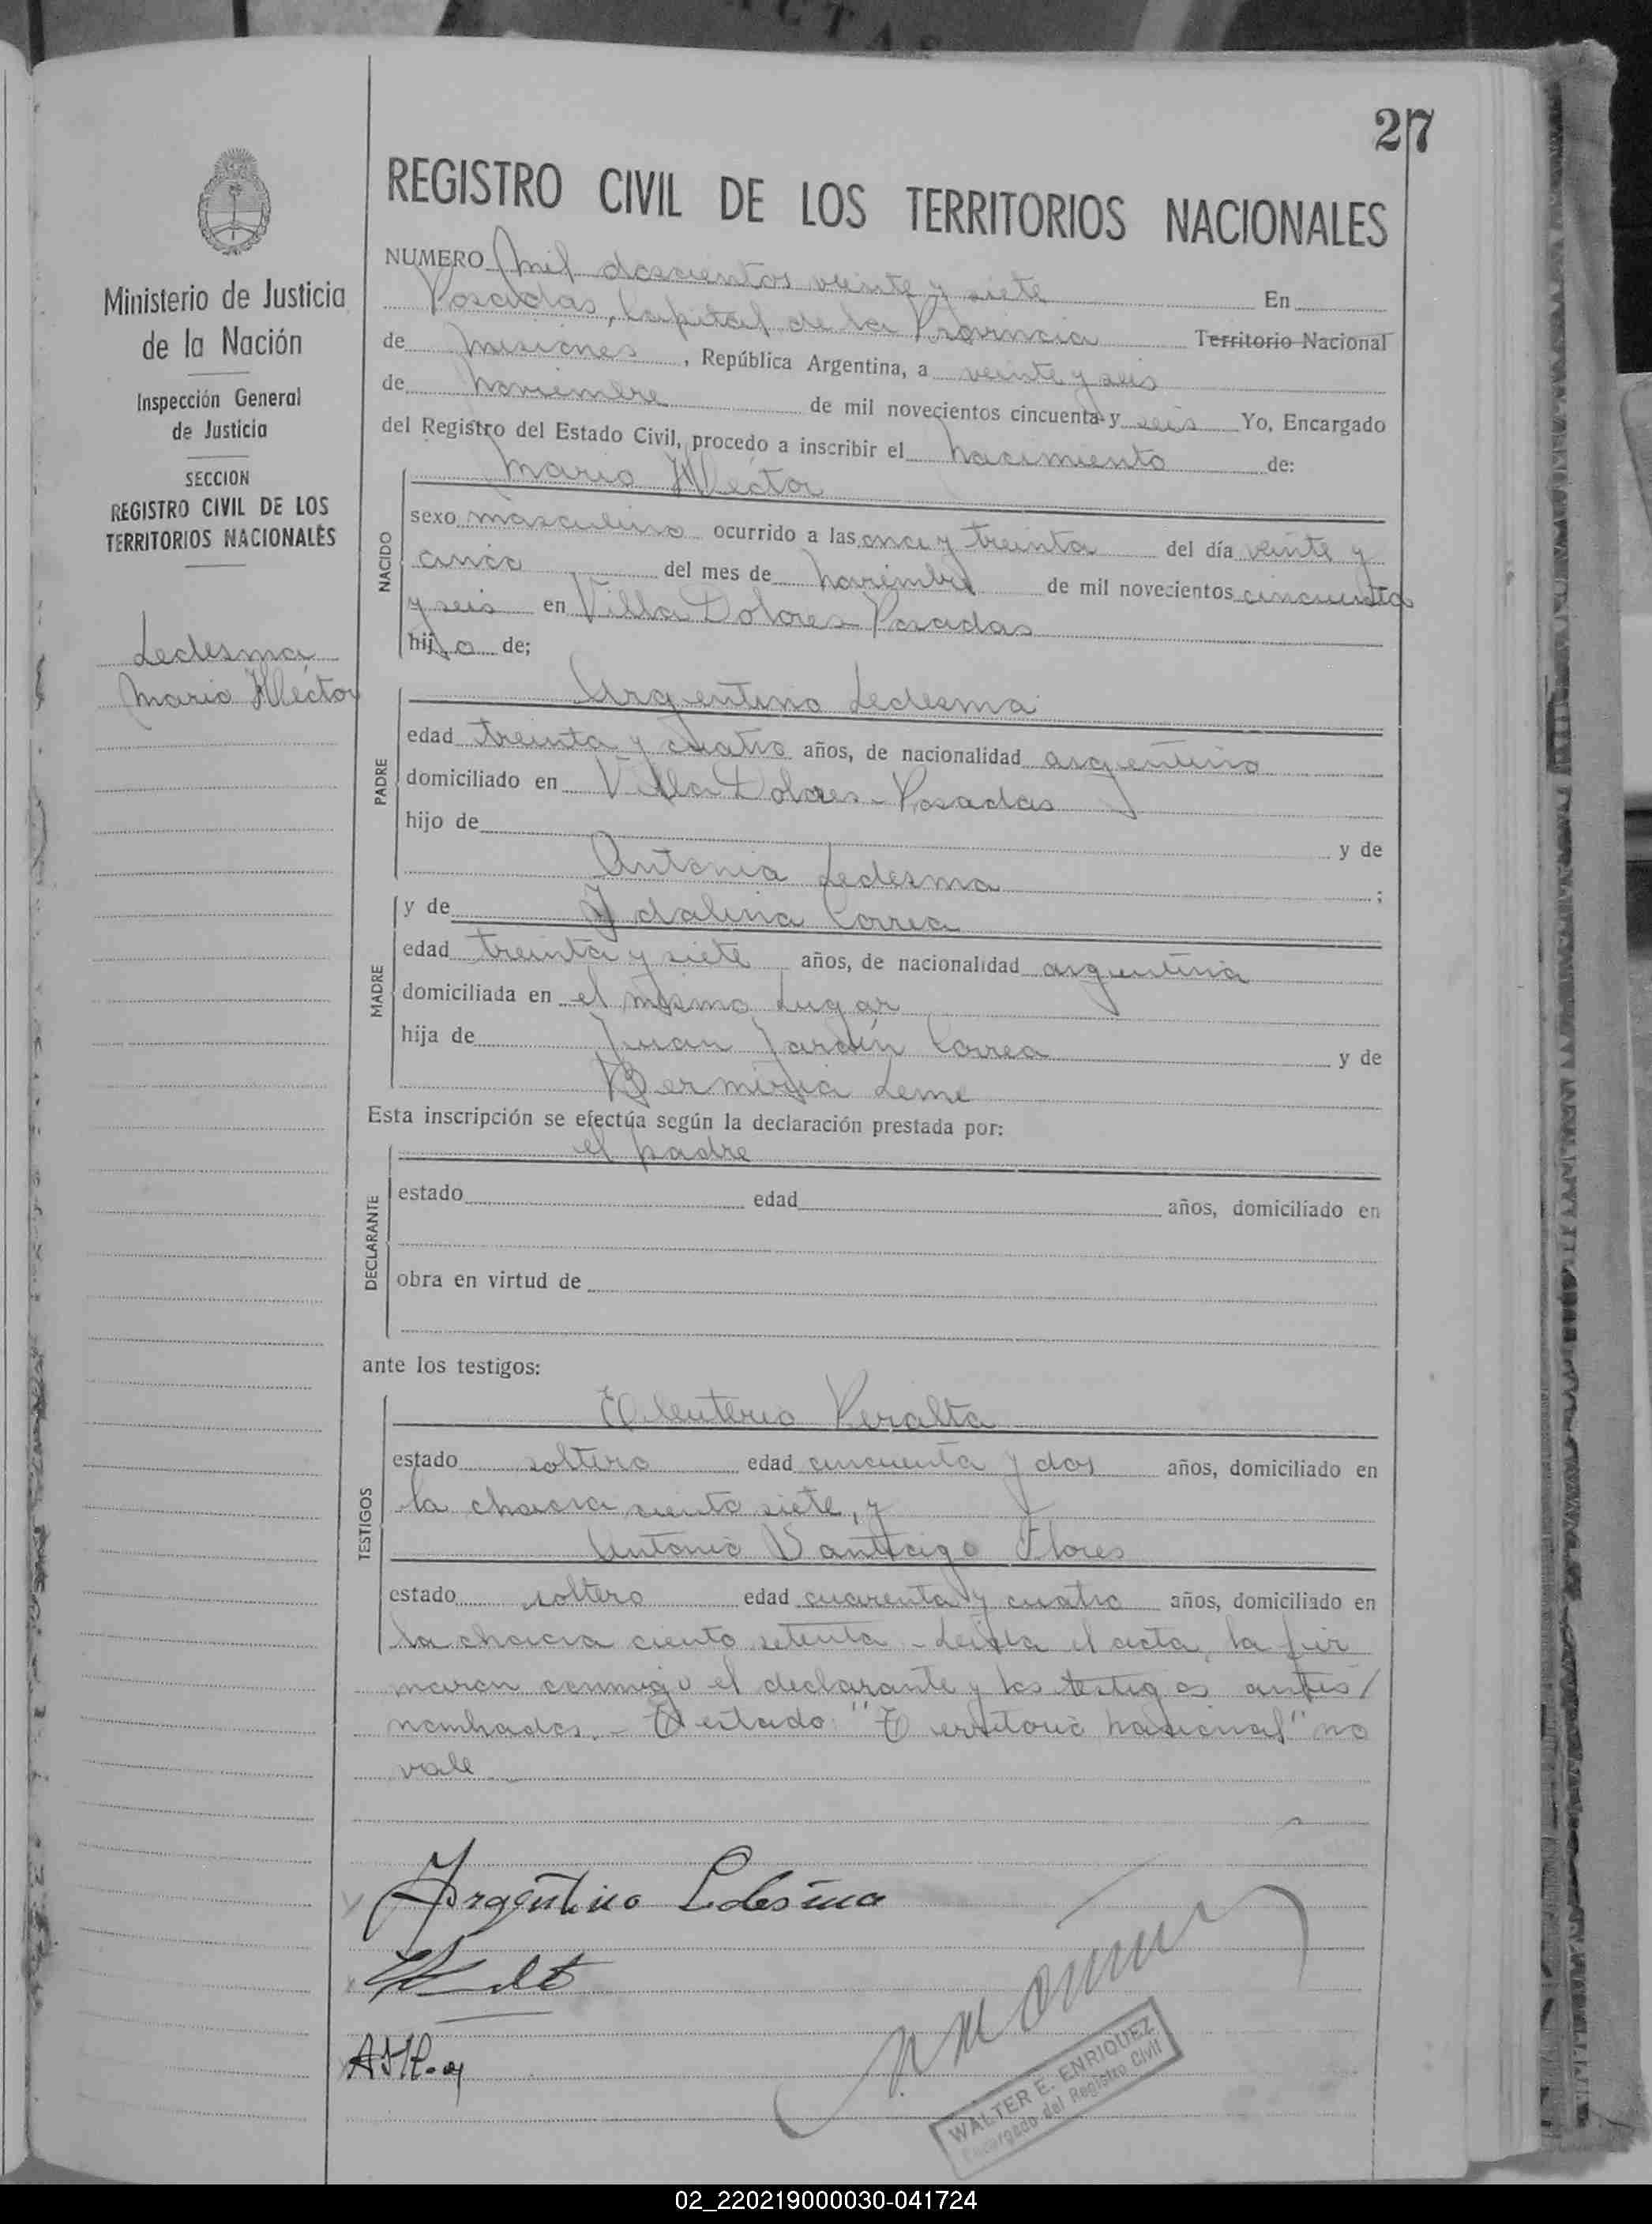 27
REGISTRO CIVIL DE LOS TERRITORIOS NACIONALES
Ministerio de Justicia
de la Nación
Inspección General
de Justicia
SECCION
REGISTRO CIVIL DE LOS
TERRITORIOS NACIONALES
Ledesma
Mario Héctor
NUMERO Mil doscientos veinte y siete En
Posadas, Capital de la Provincia Territorio Nacional
de Misiones, República Argentina, a veinte y seis
de Noviembre de mil novecientos cincuenta y seis Yo, Encargado
del Registro del Estado Civil, procedo a inscribir el Nacimiento de:
NACIDO
Mario Héctor
sexo masculino ocurrido a las once y treinta del día veinte y
cinco del mes de Noviembre de mil novecientos cincuenta
y seis en Villa Dolores-Posadas
hijo de;
PADRE
Argentino Ledesma
edad treinta y cuatro años, de nacionalidad argentino
domiciliado en Villa Dolores-Posadas
hijo de y de
Antonia Ledesma ;
MADRE
y de Ydalina Correa
edad treinta y siete años, de nacionalidad argentina
domiciliada en el mismo lugar
hija de Juan Jardín Correa y de
Leme
Esta inscripción se efectúa según la declaración prestada por:
DECLARANTE
el padre
estado edad años, domiciliado en
obra en virtud de
ante los testigos:
TESTIGOS
Eleuterio Peralta
estado soltero edad cincuenta y dos años, domiciliado en
la chacra ciento siete, y
Antonio Santiago Flores
estado soltero edad cuarenta y cuatro años, domiciliado en
la chacra ciento setenta - Leída el acta, la fir
maron conmigo el declarante y los testigos antes/
nombrados.- El estado: "Territorio Nacional" no
vale
Argentino Ledesma
WALTER E. ENRIQUEZ
Encargado del Registro Civil
02_220219000030-041724